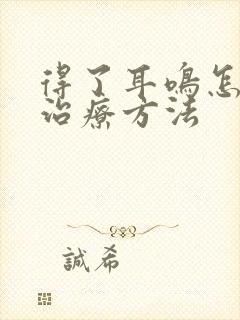 得了耳鸣怎
治疗方法
誠希